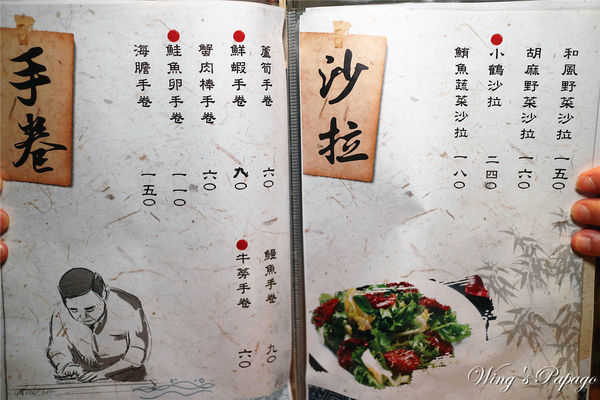 沙拉
和風野菜沙拉 一五〇
胡麻野菜沙拉 一六〇
小鶴沙拉 二四〇
鮪魚蔬菜沙拉 一八〇
手卷
蘆筍手卷 六〇
鮮蝦手卷 九〇
蟹肉棒手卷 六〇
鮭魚卵手卷 一一〇
海膽手卷 一五〇
鰻魚手卷 九〇
牛蒡手卷 六〇
Wing's Papago